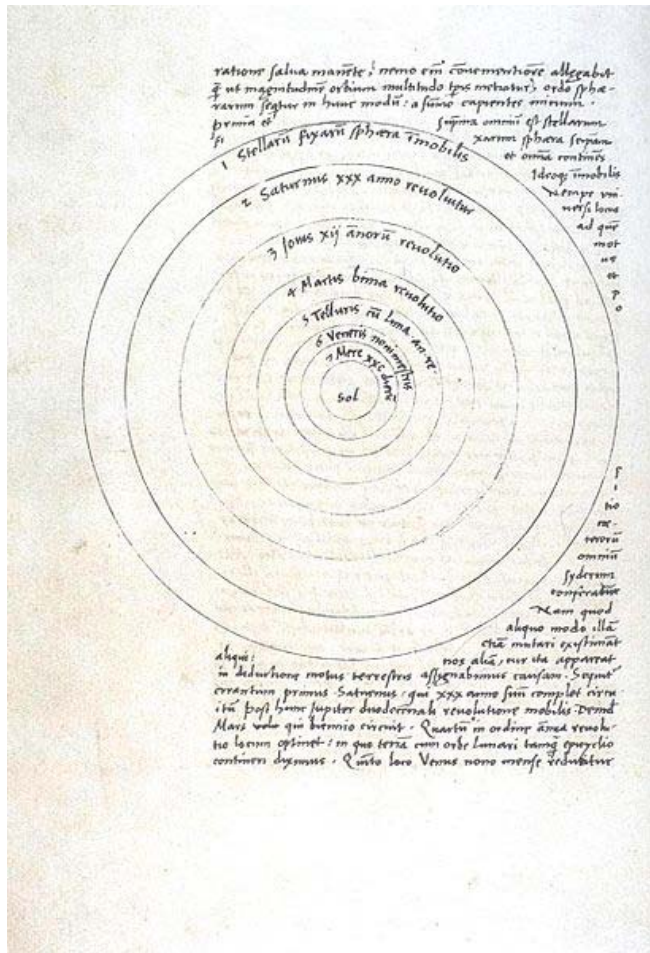 ratione salua manēte, nemo em̄ cōuenientiorē allegabit
q̄ ut magnitudinē orbium multitudo tp̄is metiatur, ordo sphæ-
rarum seqtur in hunc modū: a sum̄o capientes initium.
prima et suprema omniū est stellarum
fi xarum sphæra seipsam
et omnia continēs
Ideoq, im̄obilis
Nempe vni
uersi locus
ad quē
mot
us
et
p
o
1 Stellarū fixarū sphæra im̄obilis
2 Saturnus xxx anno reuoluitur
3 Jouis xij annorū reuolutio
4 Martis bima reuolutio
5 Telluris cū luna an. re.
6 Veneris nonimestris
7 Merc xxc dierū
Sol
s
i
tio
cæ-
terorū
omniū
syderum
conferatur
Nam quod
aliquo modo illā
etiā mutari existimāt
aliqui: nos aliā, cur ita appareat
in deductione motus terrestris assignabimus causam. Sequit
errantium primus Saturnus: qui xxx anno suū complet circu
itū post hunc Jupiter duodecennali reuolutione mobilis. Deinde
Mars qui biennio circuit. Quartū in ordine annua reuolu-
tio locum optinet: in quo terrā cum orbe lunari tamq̄ epicyclio
contineri diximus. Quīto loco Venus nono mense reducitur